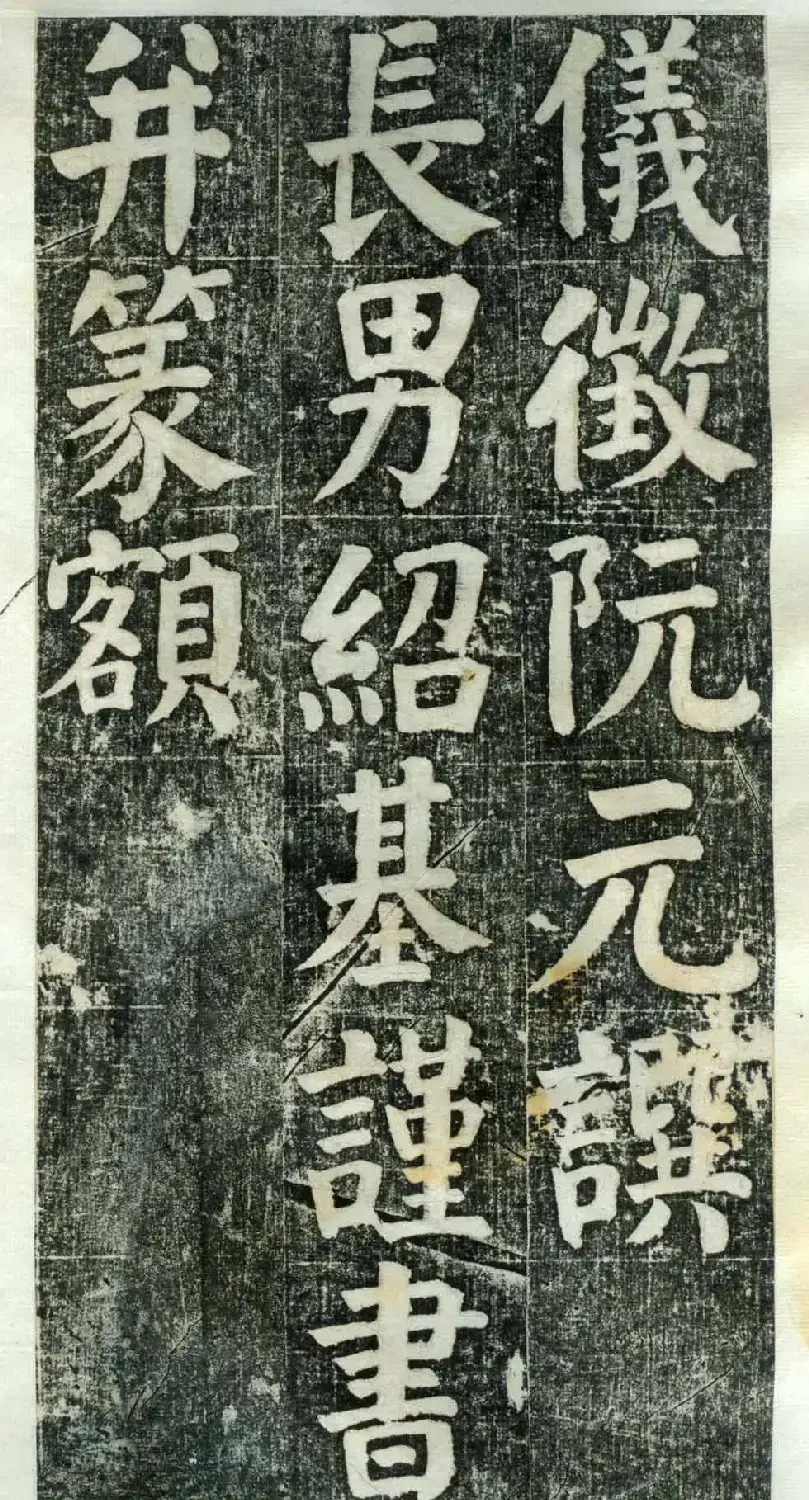 儀徵阮元譔
長男紹基謹書
并篆額